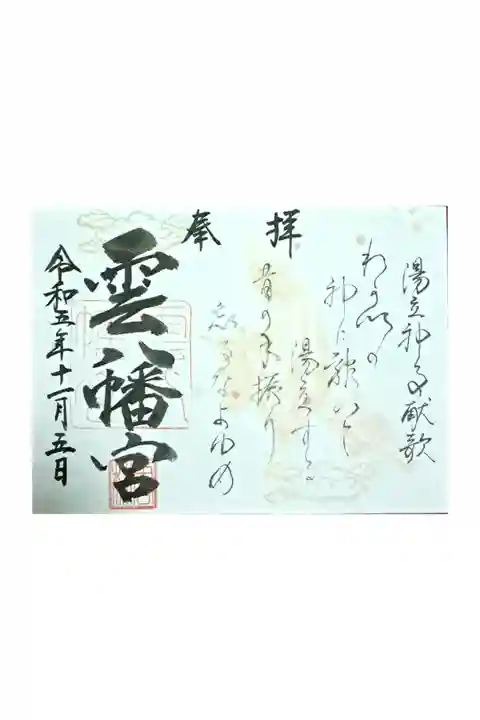 湯立神事献歌
わが心の
神に龍いて
湯立する
昔の手振り
忘るなよゆめ
奉拝
雲八幡宮
令和五年十一月五日